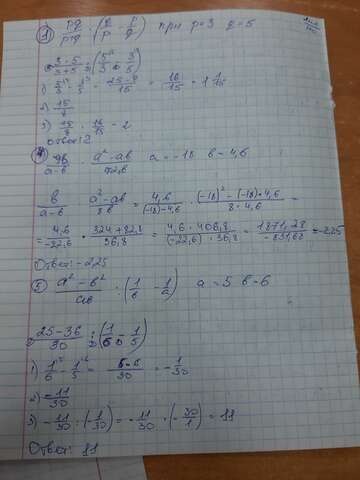 1) pq/(p+q) · (q/p - p/q) при p=3 q=5
3·5/(3+5) · (5/3 - 3/5)
1) 5/3 - 3/5 = (25-9)/15 = 16/15 = 1 1/15
2) 15/8
3) 15/8 · 16/15 = 2
Ответ: 2
a = -18 b = 4,6
b/(a-b) · (a²-ab)/8b = 4,6/((-18)-4,6) · ((-18)²-(-18)·4,6)/(8·4,6) =
= 4,6/(-22,6) · (324+82,8)/36,8 = (4,6·406,8)/((-22,6)·36,8) = 1871,28/(-831,68) = -2,25
Ответ: -2,25
5) (a²-b²)/ab : (1/b - 1/a) a = 5 b = 6
(25-36)/30 : (1/6 - 1/5)
1) 1/6 - 1/5 = (5-6)/30 = -1/30
2) -11/30
3) -11/30 : (-1/30) = -11/30 · (-30/1) = 11
Ответ: 11